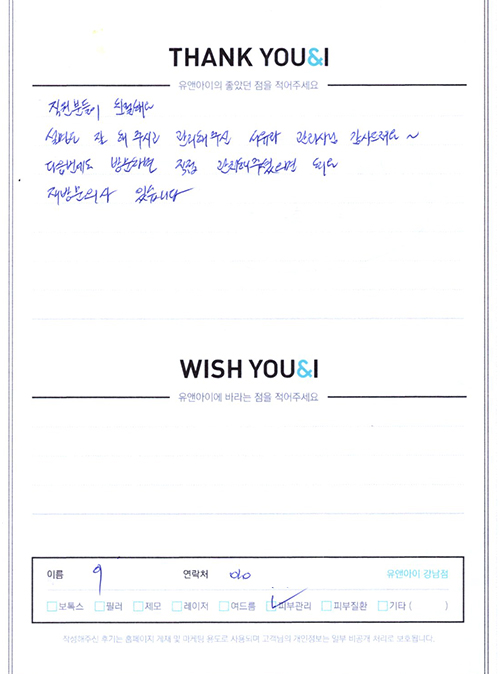 THANK YOU&I
유앤아이의 좋았던 점을 적어주세요
직원분들이 친절해요
설명도 잘 해 주시고 관리해주신 관리사님 감사드려요 ~
다음번에도 방문하면 직접 관리해주셨으면 해요
재방문의사 있습니다
WISH YOU&I
유앤아이에 바라는 점을 적어주세요
이름 연락처 010 유앤아이 강남점
보톡스 필러 제모 레이저 여드름 피부관리 피부질환 기타 ( )
작성해주신 후기는 홈페이지 게재 및 마케팅 용도로 사용되며 고객님의 개인정보는 일부 비공개 처리로 보호됩니다.